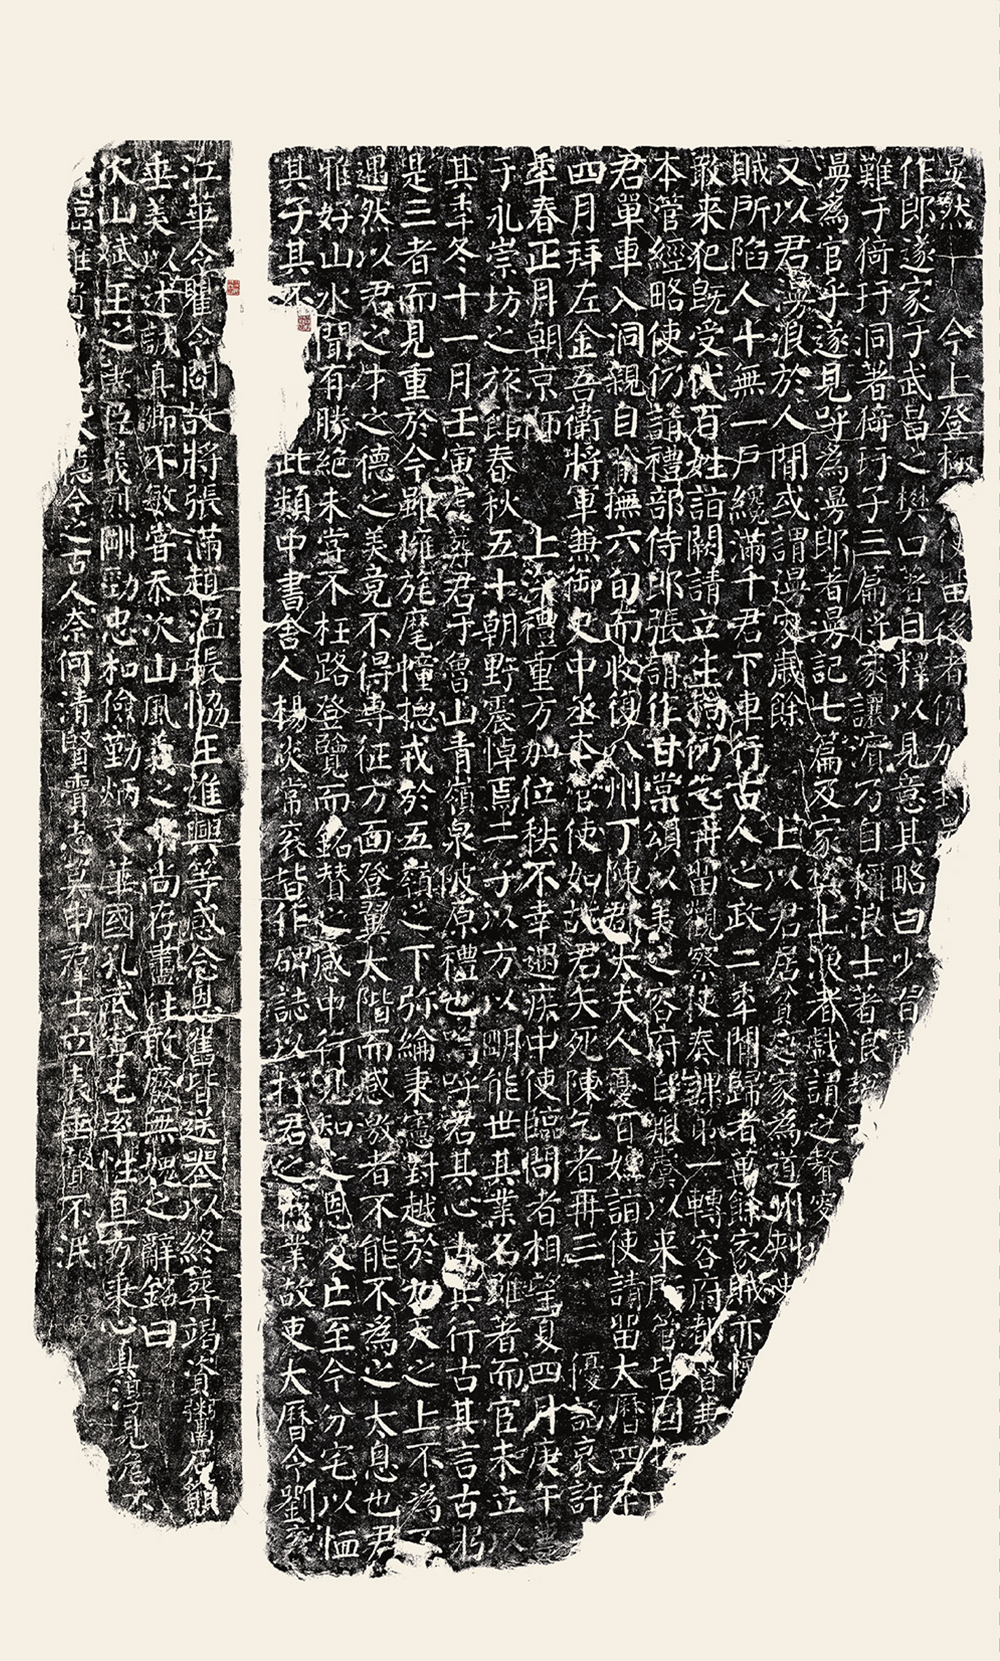 晏然 今上登極 後留後者例加封
作郎遂家于武昌之樊口著自釋以見意其略曰少習
難于猗玗洞著猗玗子三篇將家讓濱乃自稱浪士著浪說
漫爲官乎遂見呼爲漫郎著漫記七篇及家樊上漁者戲謂之聱叟
又以君漫浪於人閒或謂漫叟歲餘 上以君居貧起家爲道州刺史
賊所陷人十無一戶纔滿千君下車行古人之政二年閒歸者萬餘家賊亦懷
敢来犯既受代百姓詣闕請立生祠仍乞再留觀察使奏課第一轉容府都督兼
本管經略使仍請禮部侍郎張謂作甘棠頌以美之容府自艱虞以来所管皆固
君單車入洞親自諭撫六旬而收復八州丁陳郡太夫人憂百姓詣使請留大曆四年
四月拜左金吾衛將軍兼御史中丞本管使如故君矢死陳乞者再三 優詔哀許
年春正月朝京師 上深禮重方加位秩不幸遇疾中使臨問者相望夏四月庚午
于永崇坊之旅館春秋五十朝野震悼焉二子以方以明能世其業名雖著而官未立以
其年冬十一月壬寅虔葬君于魯山青嶺泉陂原禮也嗚呼君其心古其行古其言古躬
是三者而見重於今雖擁旄麾幢揔戎於五嶺之下弥綸秉憲對越於九天之上不爲不
遇然以君之才之德之美竟不得專征方面登翼太階而感激者不能不爲之太息也君
雅好山水聞有勝絕未嘗不枉路登覽而銘贊之感中行見知之恩及亡至今分宅以恤
其子其不 此類中書舍人楊炎常衮皆作碑誌以抒君之德業故吏大曆令劉衮
江華令瞿令問故將張滿趙溫張協王進興等感念恩舊皆送塟以終葬竭資鬻石願
垂美以述誠真卿不敏嘗忝次山風義之末尚存盡往敢廢無愧之辭銘曰
次山斌斌王之藎臣義烈剛勁忠和儉勤炳文華國孔武寧屯率性直方秉心真淳見危不
今之古人奈何清賢賫志莫申羣士立表垂聲不泯